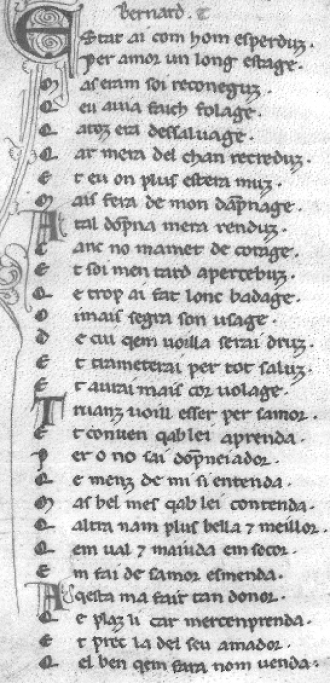 bernard. 
EStar ai com hom esperduz.
Per amor un long estage.
M as eram soi reconeguz.
Q eu auia faich folage.
C atoz era dessaluage.
Q ar mera del chan recreduz.
E t eu on plus estera muz.
M ais fera de mon dāpnage.
A tal dōpna mera renduz.
C anc no mamet de corage.
E t soi men tard apercebuz.
Q e trop ai fat lonc badage.
O imais segrai son usage.
D e cui qem uoilla serai druz.
E t trameterai per tot saluz.
E t aurai mais cor uolage.
T ruanz uoill esser per samor.
E t conuen qab lei aprenda.
P er o no sai dōpneiador.
Q e menz de mi si entenda.
M as bel mes qab lei contenda.
Q altra nam plus bella 7 meillor.
Q em ual 7 maiuda em socor.
E m fai de samor esmenda.
A qesta ma fait tan donor.
Q e plaz li car merceņprenda.
E t prec la del seu amador.
Q el ben qem fara nom uenda.